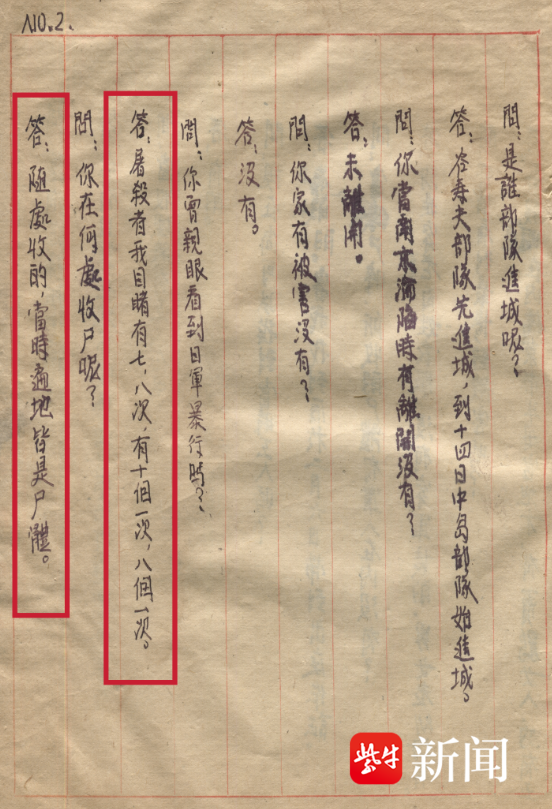 NO.2.
問：是誰部隊進城呢？
答：谷壽夫部隊先進城，到十四日中島部隊始進城。
問：你當南京淪陷時有離開沒有？
答：未離開。
問：你家有被害沒有？
答：沒有。
問：你曾親眼看到日軍暴行嗎？
答：屠殺者我目睹有七，八次，有十個一次，八個一次。
問：你在何處收尸呢？
答：隨處收的，當時遍地皆是尸體。
紫牛新闻